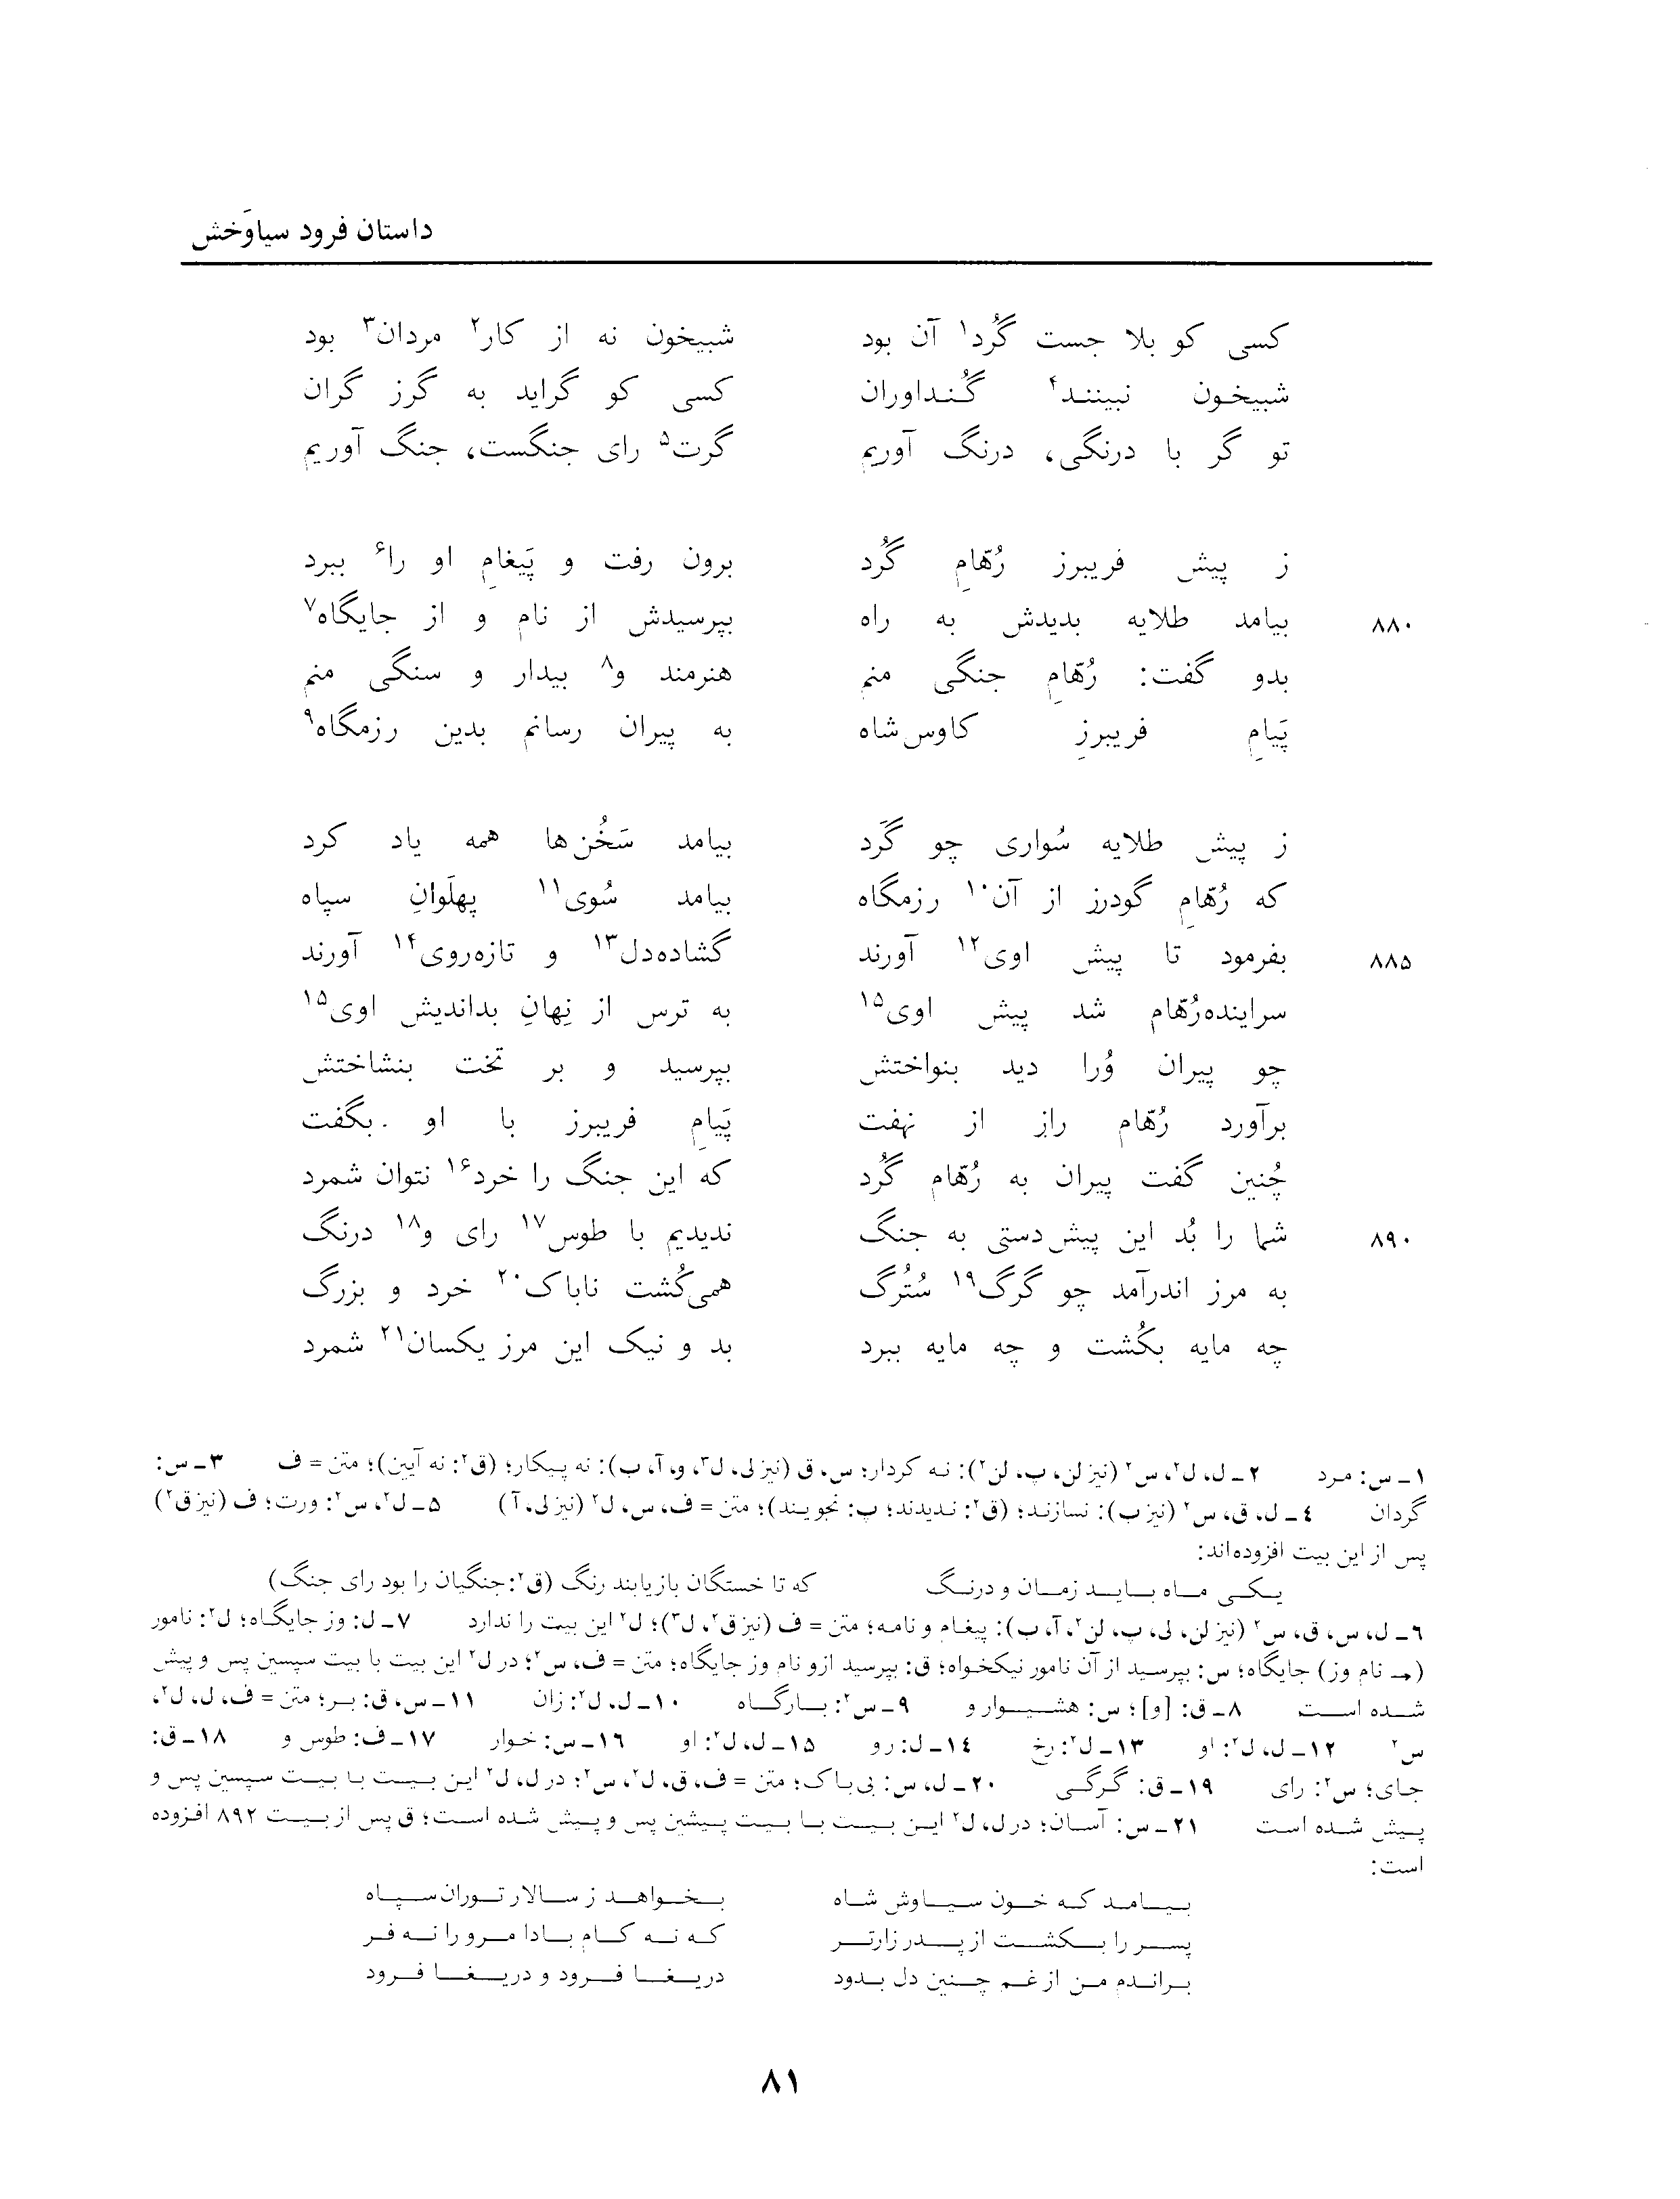 داستان فرود سیاوَخش
کسی کو بلا جست گُرد۱ آن بود شبیخون نه از کار۲ مردان۳ بود
شبیخون نبینند۴ گُنداوران کسی کو گراید به گرز گران
تو گر با درنگی، درنگ آوریم گرت۵ رای جنگست، جنگ آوریم
ز پیش فریبرز رُهّامِ گُرد برون رفت و پَیغامِ او را۶ ببرد
۸۸۰ بیامد طلایه بدیدش به راه بپرسیدش از نام و از جایگاه۷
بدو گفت: رُهّامِ جنگی منم هنرمند و۸ بیدار و سنگی منم
پَیامِ فریبرزِ کاوس‌شاه به پیران رسانم بدین رزمگاه۹
ز پیش طلایه سُواری چو گَرد بیامد سَخُن‌ها همه یاد کرد
که رُهّامِ گودرز از آن۱۰ رزمگاه بیامد سُوی۱۱ پهلَوانِ سپاه
۸۸۵ بفرمود تا پیش اوی۱۲ آورند گشاده‌دل۱۳ و تازه‌روی۱۴ آورند
سراینده‌رُهّام شد پیش اوی۱۵ به ترس از نِهانِ بداندیش اوی۱۵
چو پیران وُرا دید بنواختش بپرسید و بر تخت بنشاختش
برآورد رُهّام رازِ از نهفت پَیامِ فریبرز با او بگفت
چُنین گفت پیران به رُهّامِ گُرد که این جنگ را خرد۱۶ نتوان شمرد
۸۹۰ شما را بُد این پیش‌دستی به جنگ ندیدیم با طوس۱۷ رای و۱۸ درنگ
به مرز اندرآمد چو گرگ۱۹ سُتُرگ همی‌کُشت ناباک۲۰ خرد و بزرگ
چه مایه بکُشت و چه مایه ببرد بد و نیک این مرز یکسان۲۱ شمرد
۱ـ س: مرد ۲ـ ل، ل۲، س۲ (نیز لن، پ، لن۲): نه کردار؛ س، ق (نیز لی، ل۳، و، آ، ب): نه پیکار؛ (ق۲: نه آیین)؛ متن = ف ۳ـ س:
گردان ۴ـ ل، ق، س۲ (نیز ب): نسازند؛ (ق۲: ندیدند؛ پ: نجویند)؛ متن = ف، س، ل۲ (نیز لی، آ) ۵ـ ل۲، س۲: ورت؛ ف (نیز ق۲)
پس از این بیت افزوده‌اند:
یکی ماه باید زمان و درنگ که تا خستگان بازیابند رنگ (ق۲: جنگیان را بود رای جنگ)
۶ـ ل، س، ق، س۲ (نیز لن، لی، پ، لن۲، آ، ب): پیغام و نامه؛ متن = ف (نیز ق۲، ل۳)؛ ل۲ این بیت را ندارد ۷ـ ل: وز جایگاه؛ ل۲: نامور
(← نام وز) جایگاه؛ س: بپرسید از آن نامور نیکخواه؛ ق: بپرسید ازو نام وز جایگاه؛ متن = ف، س۲؛ در ل۲ این بیت با بیت سپسین پس و پیش
شده است ۸ـ ق: [و]؛ س: هشیوار و ۹ـ س۲: بارگاه ۱۰ـ ل، ل۲: زان ۱۱ـ س، ق: بر؛ متن = ف، ل، ل۲،
س۲ ۱۲ـ ل، ل۲: او ۱۳ـ ل۲: رخ ۱۴ـ ل: رو ۱۵ـ ل، ل۲: او ۱۶ـ س: خوار ۱۷ـ ف: طوس و ۱۸ـ ق:
جای؛ س۲: رای ۱۹ـ ق: گرگی ۲۰ـ ل، س: بی‌باک؛ متن = ف، ق، ل۲، س۲؛ در ل، ل۲ این بیت با بیت سپسین پس و
پیش شده است ۲۱ـ س: آسان؛ در ل، ل۲ این بیت با بیت پیشین پس و پیش شده است؛ ق پس از بیت ۸۹۲ افزوده
است:
بیامد که خون سیاوش شاه بخواهد ز سالار توران سپاه
پسر را بکشت از پدر زارتر که نه کام بادا مرو را نه فر
براندم من از غم چنین دل بدود دریغا فرود و دریغا فرود
۸۱